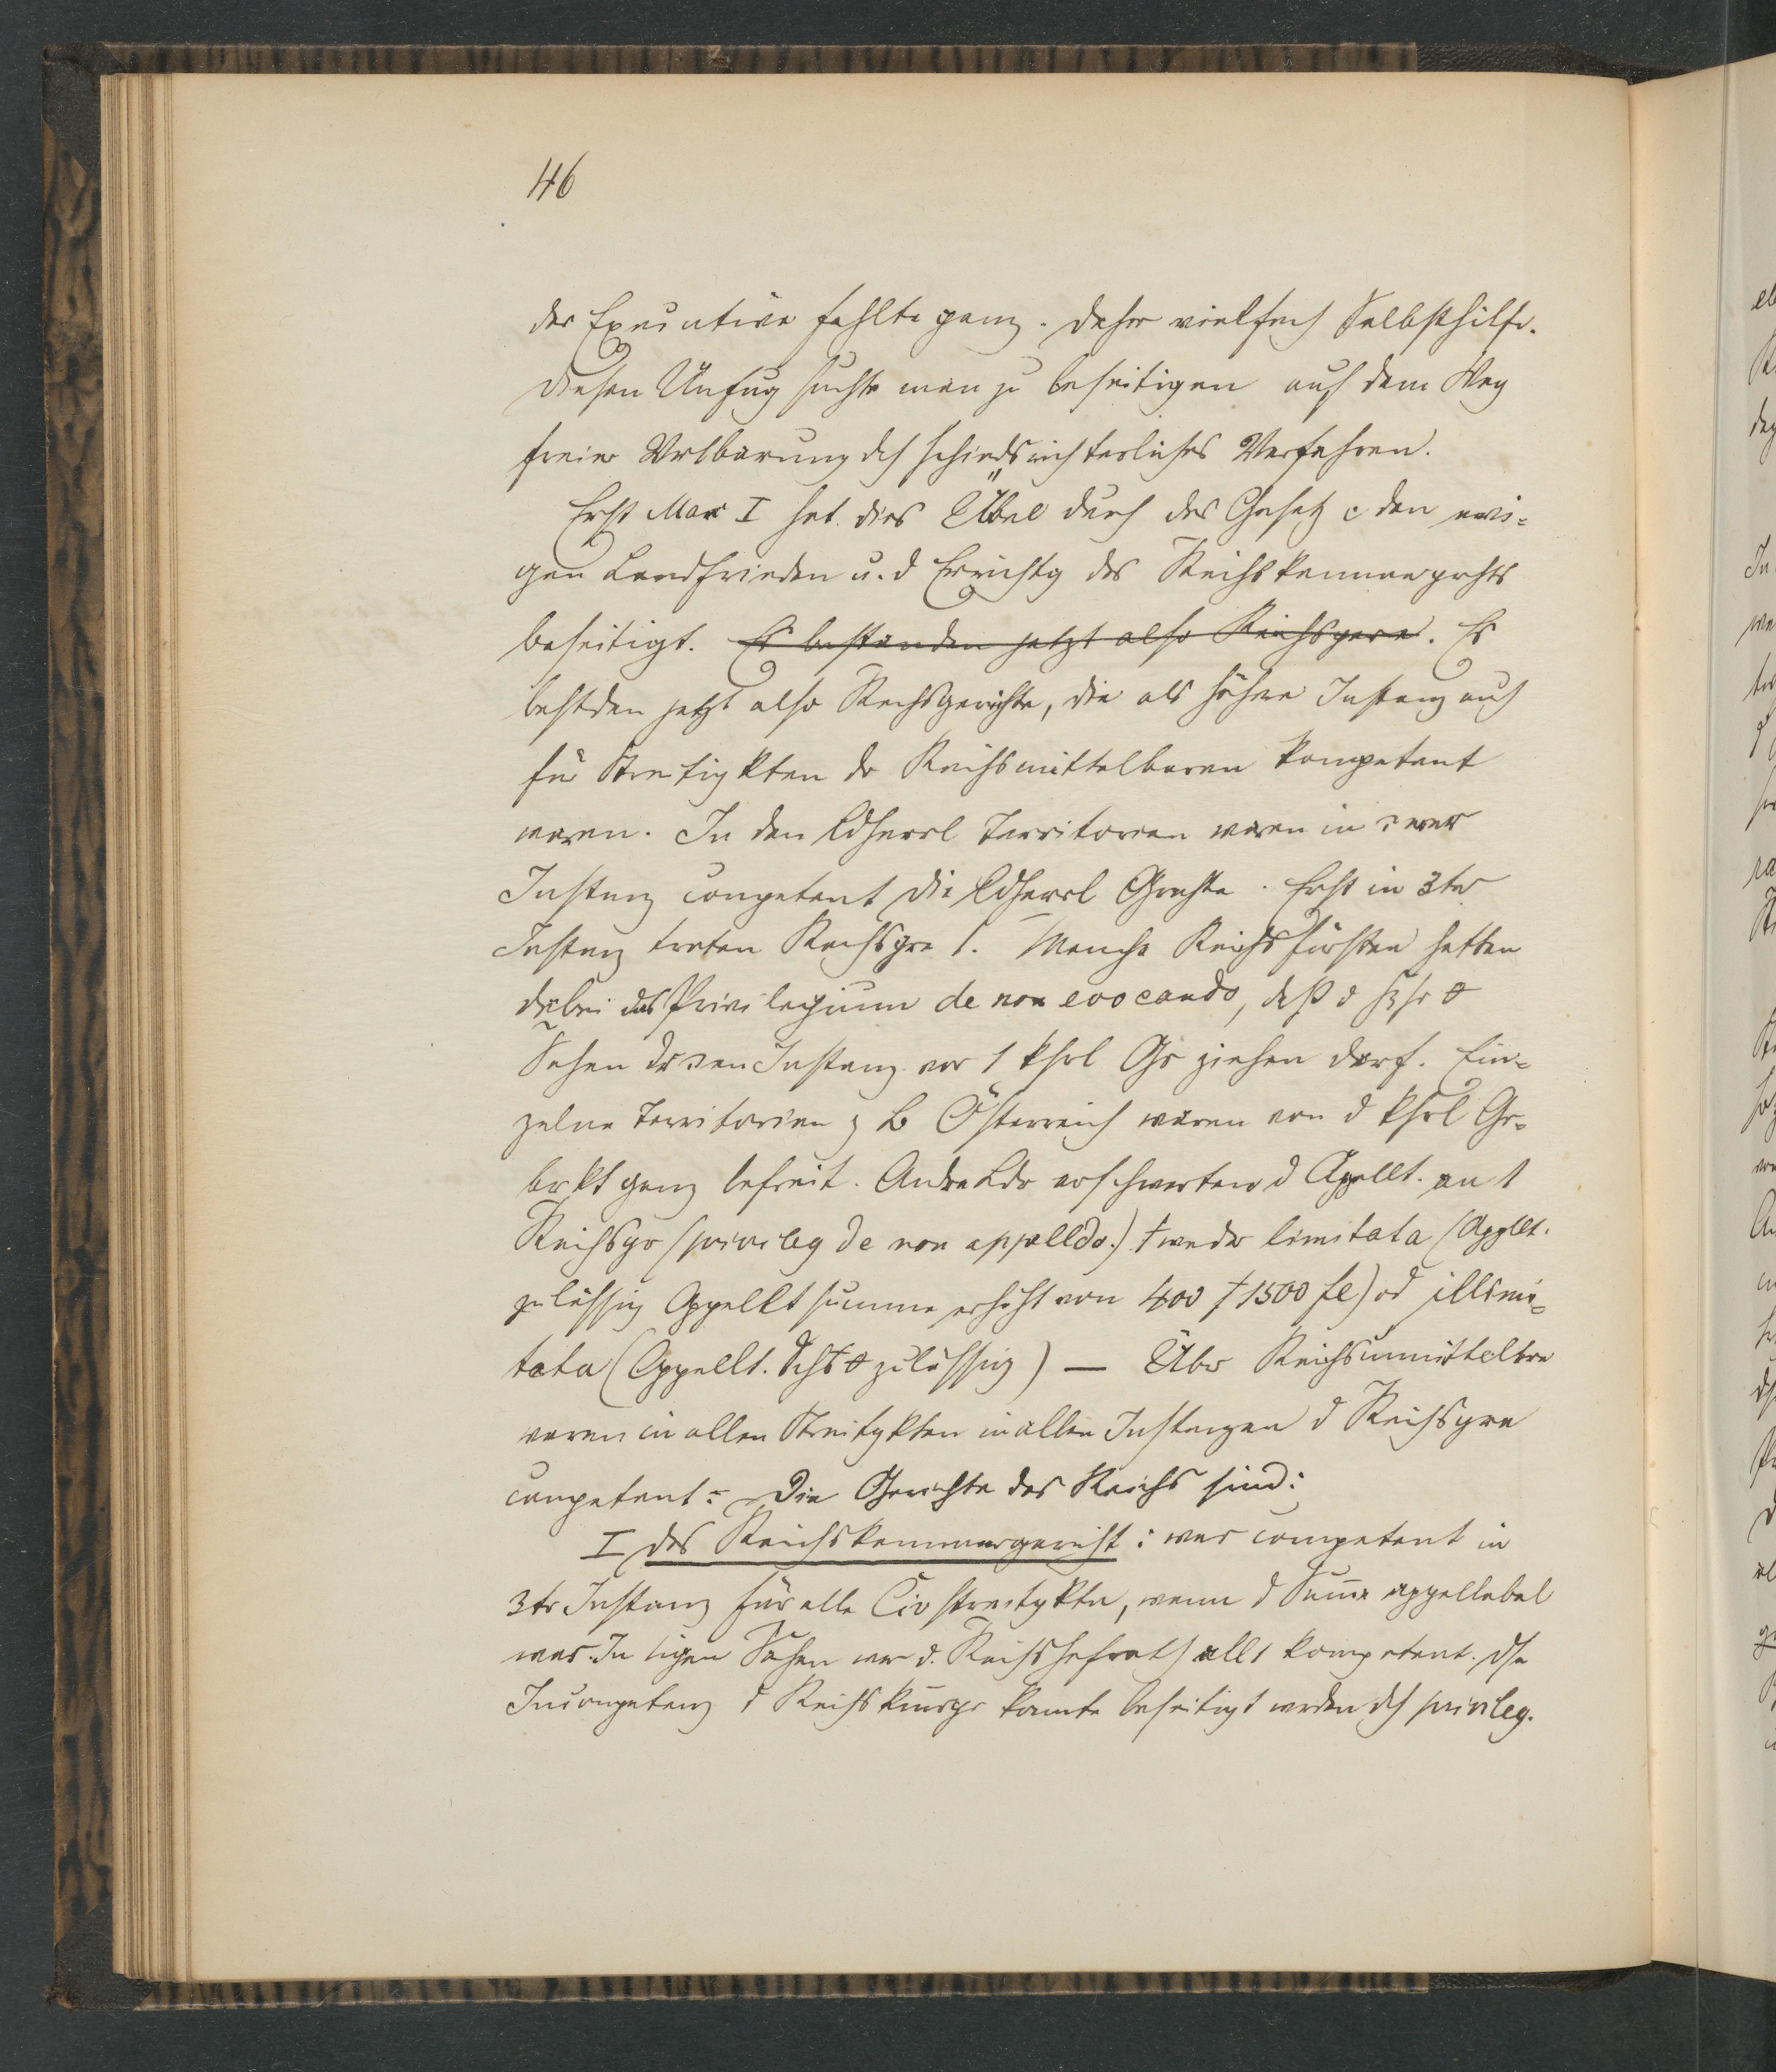 46
der Executive fehlte ganz. Daher vielfach Selbsthilfe.
Diesen Unfug suchte man zu beseitigen auf dem Weg
freier Vrlbarung dch schiedsrichterliches Verfahren.
Erst Max I hat dies Übel durch das Gesetz den ewi-
gen Landfrieden u. d Errichtg des Reichskammergrchts
beseitigt. Es bestanden jetzt also Reichsgere. Es
bestden jetzt also Rechsgerichte, die als höhere Instanz auch
für Streitigkten dr Reichsmittelbaren kompetent
waren. In den ldherrl Territorien waren in
Instanz competent die ldherrl Grchte. Erst in 3ter
Instanz treten Rechsgre 1. Manche Reichsfürsten hatten
dabei das Privilegium de non evocando, daß d
Sachen dr Instanz vor 1 kshrl Gr ziehen darf. Ein-
zelne Territorien z B Österreich waren von d kshrl Gr-
brkt ganz befreit. Andre Ldr erschwerten d Apellt. an 1
Reichsgr (privileg de non appelldo.) tweder limitata (Appllt.
zulässig Appelltsumme erhöht von 400 † 1500 fl) od illimi-
tata (Appellt. zulässig) — Über Reichsunmittelbre
waren in allen Streitgkten in allen Instanzen d Reichsgre
competent. – Die Gerichte des Reichs sind:
I das Reichskammergericht: war competent in
3tr Instanz für alle Civ streitgktn, wenn d Sume appellabel
war. In Sachen war d. Reichshofrath all1 kompetent. Dse
Incompetenz d Reichskmrgr konnte beseitigt werden dch privileg.